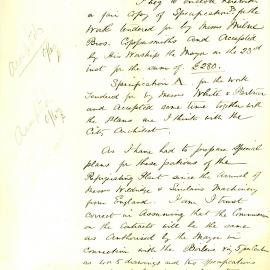 I beg to enclose herewith
a fair Copy of Specifications for the
Work tendered for by Messrs
Bros. Coppersmiths and Accepted
by His Worship the Mayor on the 23rd
inst for the sum of £280.
Specification A for the work
tendered for by Messrs White &
and Accepted same time together with
the Plans are I think with the
City Architect.
As I have had to prepare special
plans for these portions of the
Refrigerating Plant since the arrival of
Messrs Wildridge & Sinclairs Machinery
from England. I am I trust
correct in Assuming that the Commission
on the Contracts will be the same
as Authorised by the Mayor in
connection with the Boilers viz 5 per Centum
as to drawings and specifications